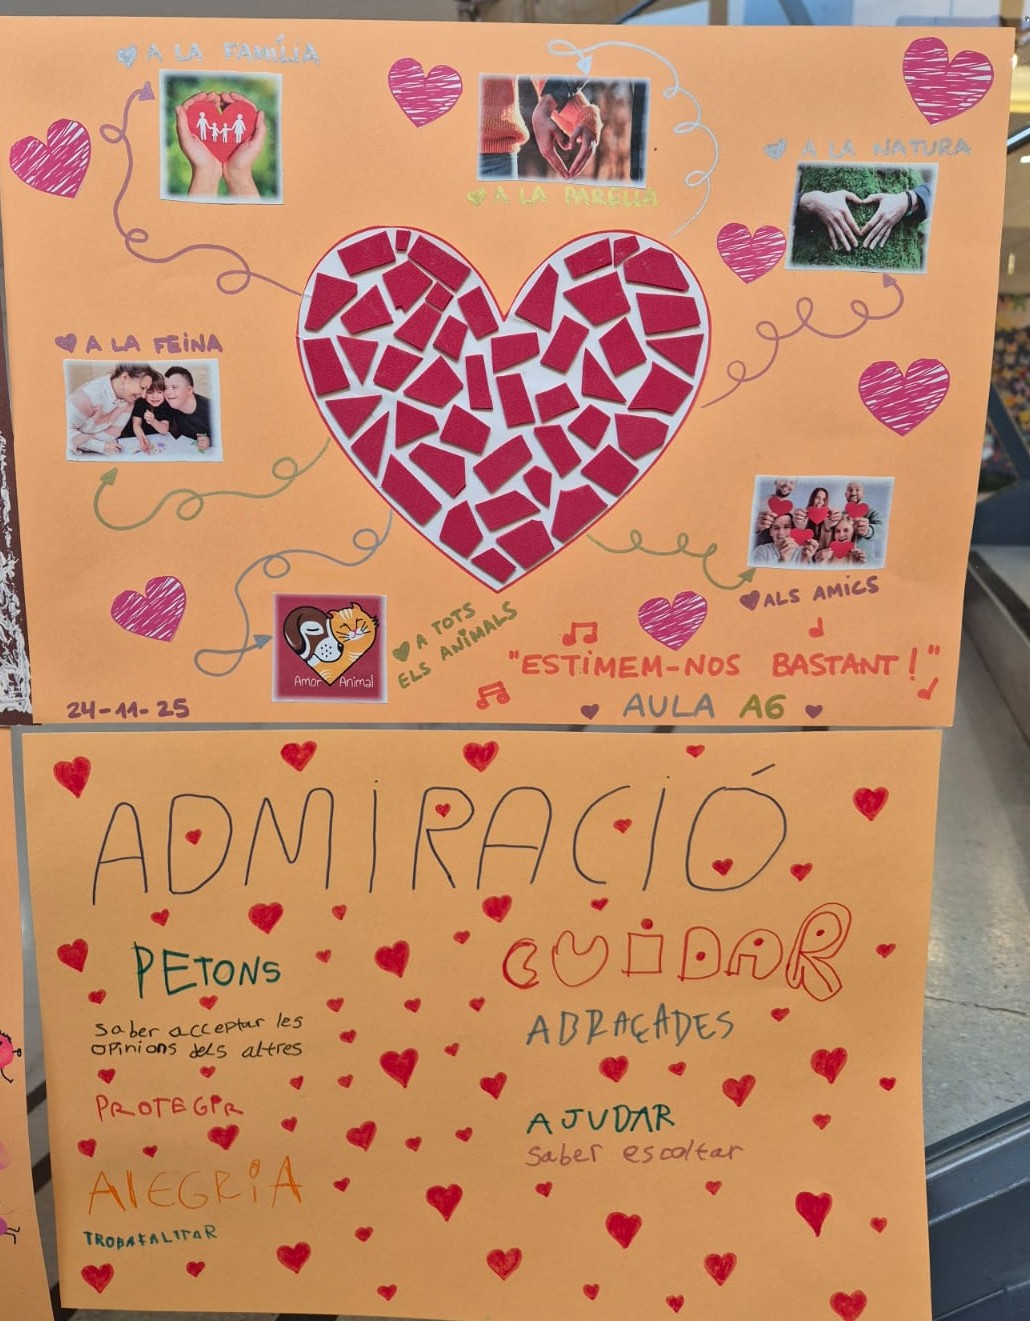 A LA FAMÍLIA
A LA PARELLA
A LA NATURA
A LA FEINA
ALS AMICS
Amor Animal
A TOTS
ELS ANIMALS
"ESTIMEM-NOS BASTANT!"
24-11-25
AULA A6
ADMIRACIÓ
PETONS
CUIDAR
Saber acceptar les
opinions dels altres
ABRAÇADES
PROTEGIR
AJUDAR
Saber escoltar
ALEGRIA